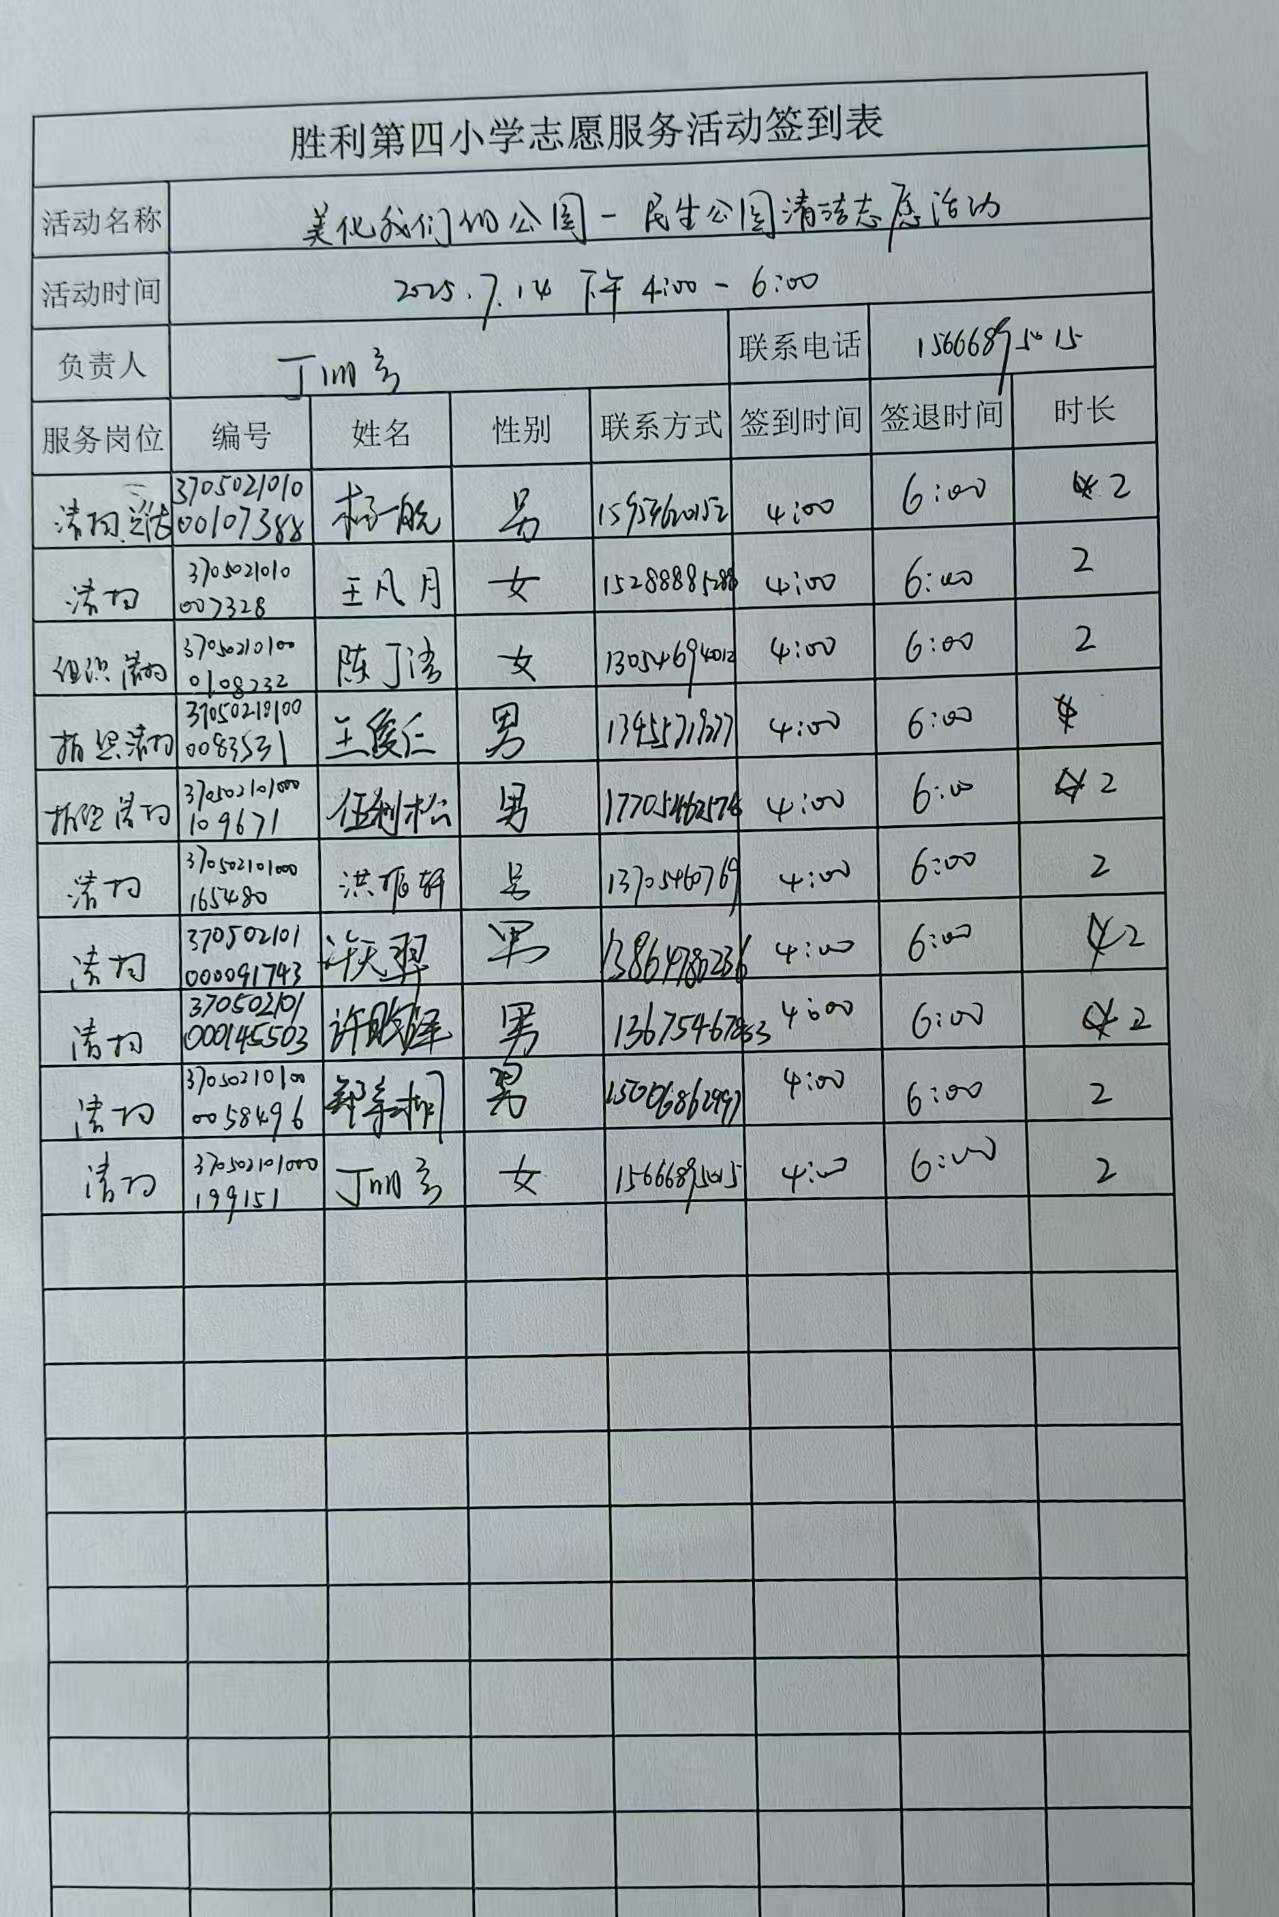 胜利第四小学志愿服务活动签到表
活动名称 美化我们的公园-民生公园清洁志愿活动
活动时间 2025.7.14 下午 4:00-6:00
负责人 丁 联系电话 15666895015
服务岗位 编号 姓名 性别 联系方式 签到时间 签退时间 时长
清扫 370502101000107388 杨一航 男 15954620152 4:00 6:00 2
清扫 3705021010007328 王凡月 女 4:00 6:00 2
组织清扫 370502101000108232 陈丁洁 女 13054694012 4:00 6:00 2
清扫 王俊仁 男 4:00 6:00
清扫 370502101000109671 任利松 男 17705462574 4:00 6:00 2
清扫 370502101000165480 洪 男 1370546769 4:00 6:00 2
清扫 370502101000091743 许天 男 13864780236 4:00 6:00 2
清扫 370502101000145503 许 泽 男 13675467853 4:00 6:00 2
清扫 370502101000058496 男 15006862997 4:00 6:00 2
清扫 370502101000199151 丁 女 15666895015 4:00 6:00 2